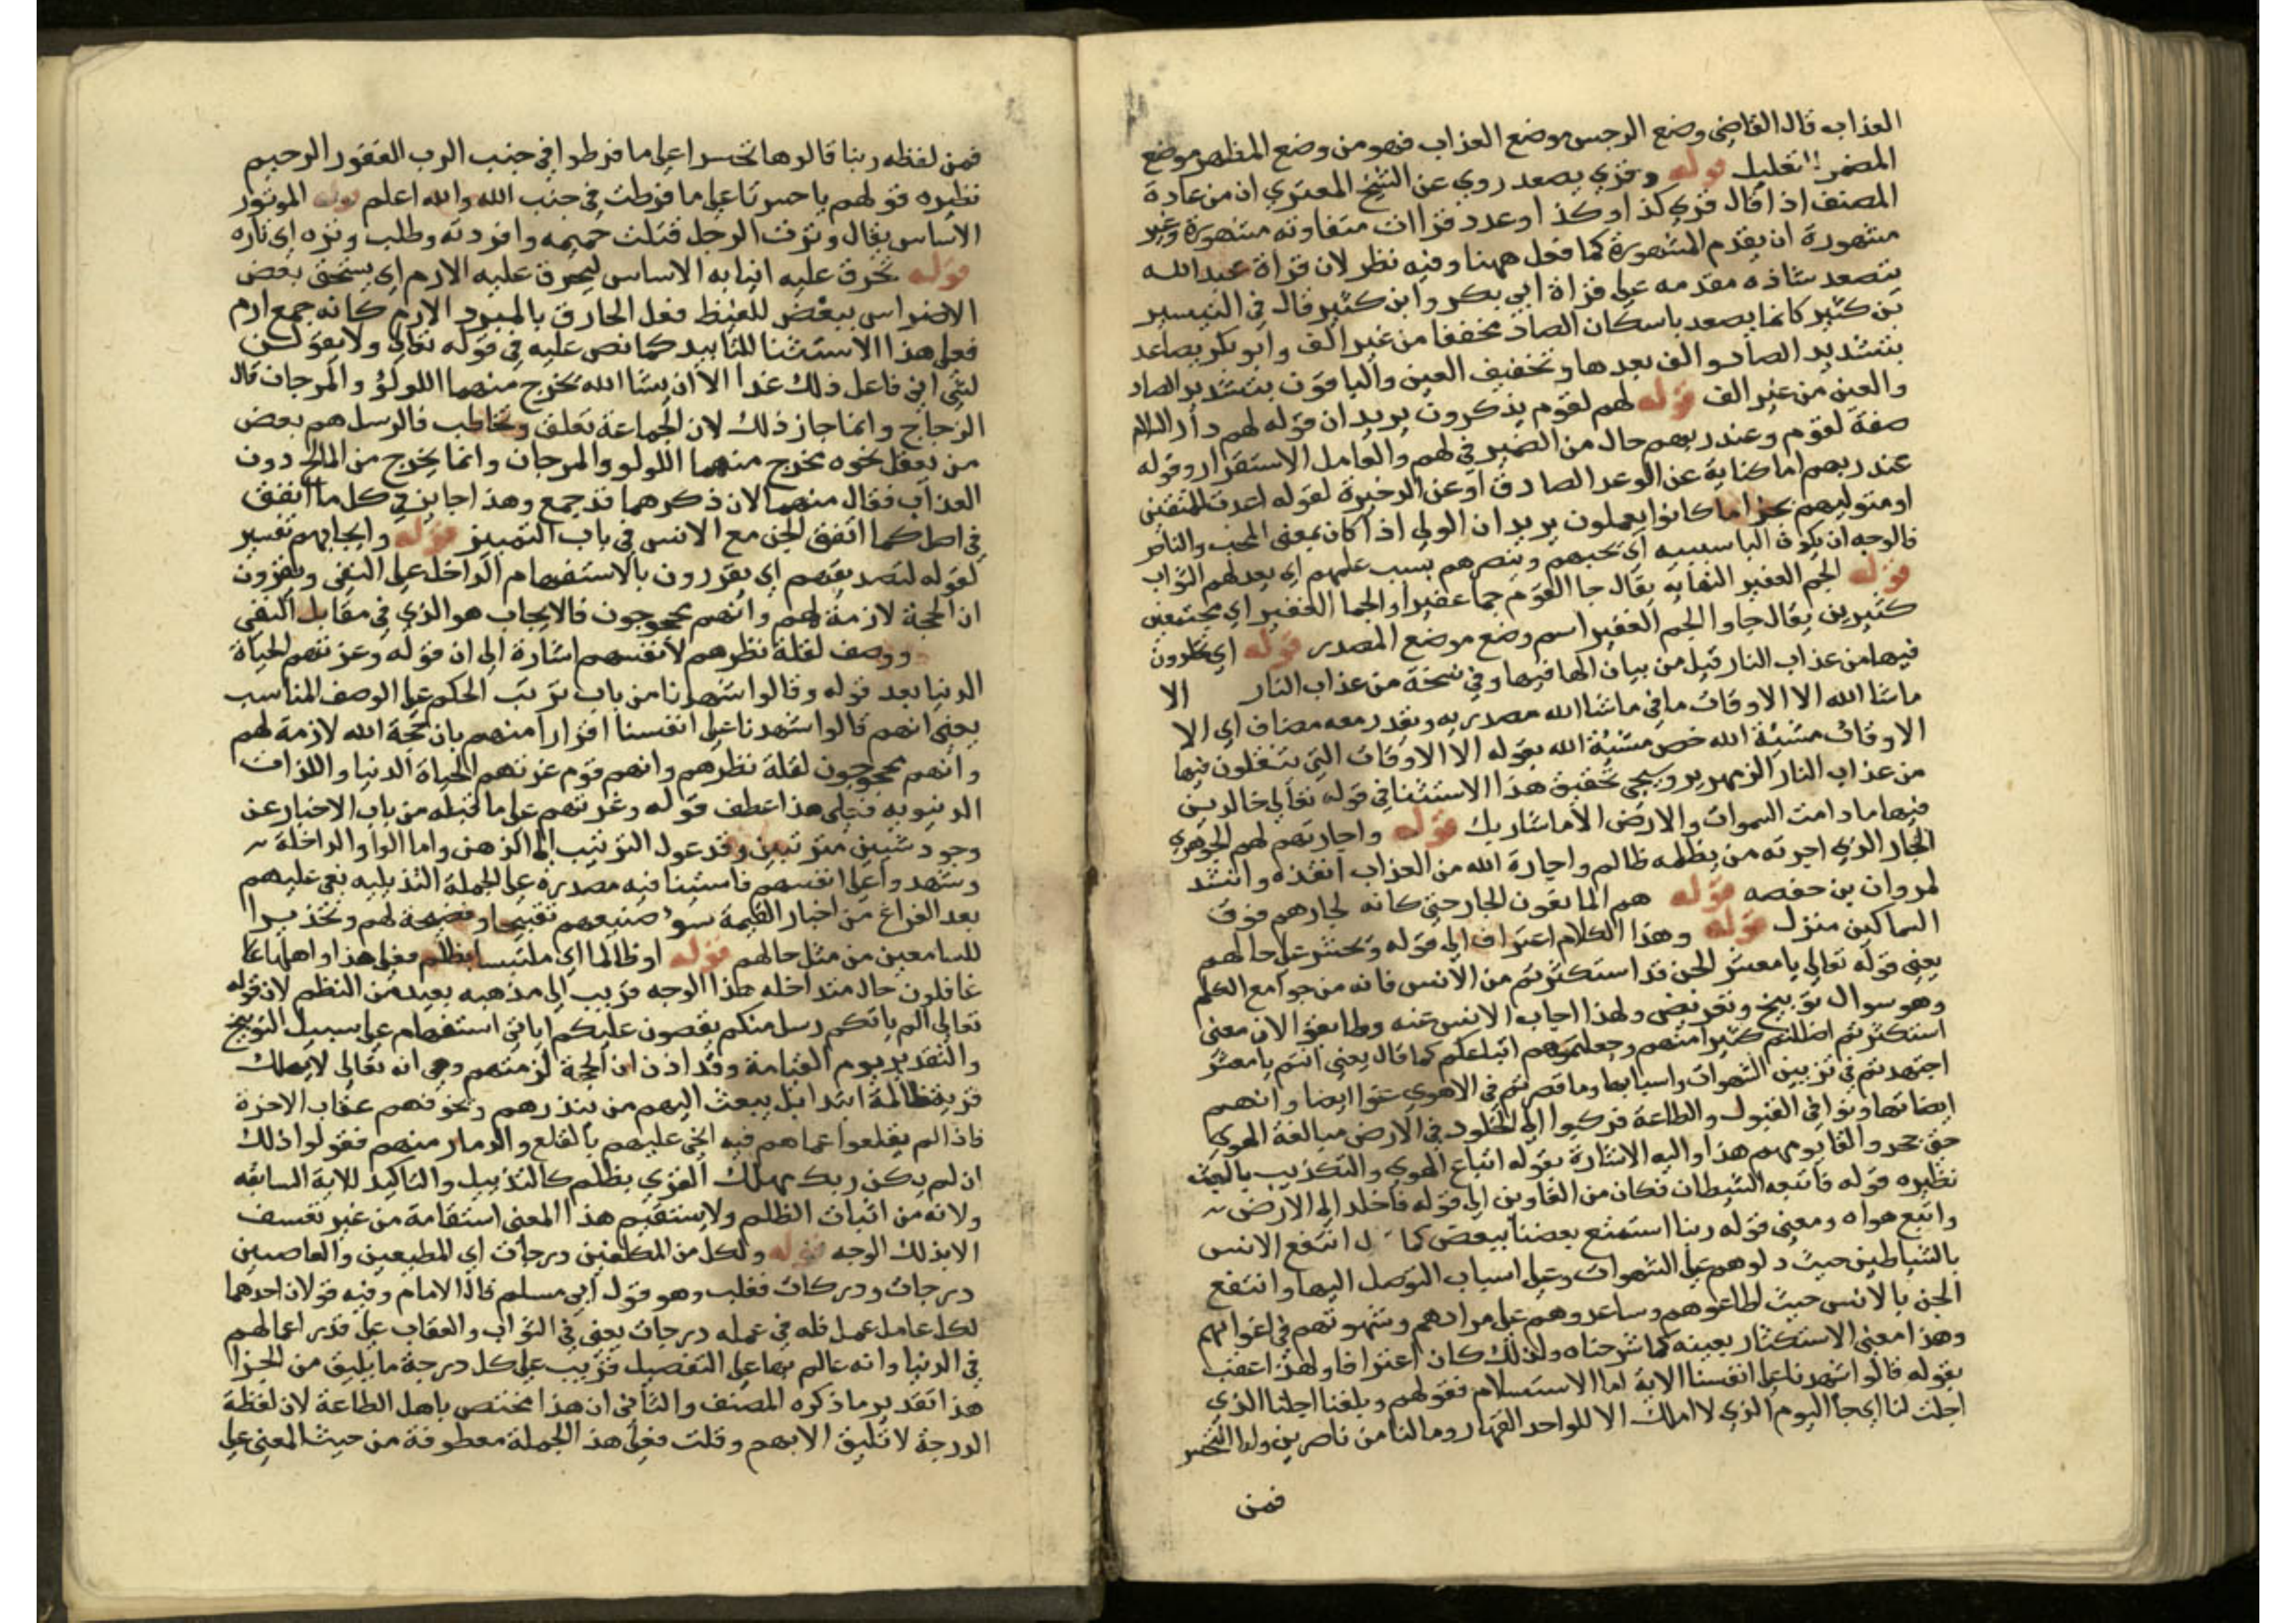 العذاب قال القاضي وضع الرجس موضع العذاب فهو من وضع المظهر موضع
المضمر للتعليل قوله وقري يصعد روي عن الشيخ المعتزي ان من عادة
المصنف اذا قال قري كذا وكذا وعدد قراات متفاوته مشهورة وغير
مشهورة ان يقدم المشهورة كما فعل ههنا وفيه نظر لان قراة عبد الله
يتصعد شاذه مقدمه على قراة ابي بكر وابن كثير قال في التيسير
بن كثير كانما يصعد باسكان الصاد مخففا من غير الف وابو بكر يصاعد
بتشديد الصاد والف بعدها وتخفيف العين والباقون بتشديد الصاد
والعين من غير الف قوله لهم لقوم يذكرون يريد ان قوله لهم دار السلام
صفة لقوم وعند ربهم حال من الضمير في لهم والعامل الاستقرار وقوله
عند ربهم اما كناية عن الوعد الصادق او عن الذخيرة لقوله اعدت للمتقين
او متوليهم بجزا ما كانوا يعملون يريد ان الولي اذا كان بمعنى المحب والناصر
فالوجه ان يكون البا سببيه اي يحبهم وينصرهم بسبب علمهم اي يعد لهم الثواب
قوله الجم الغفير النهايه يقال جا القوم جما غفيرا والجما الغفير اي مجتمعين
كثيرين يقال جاوا الجم الغفير اسم وضع موضع المصدر قوله اي يخلدون
فيها من عذاب النار قيل من بيان الها فيها وفي نسخة من عذاب النار الا
ماشا الله الا الاوقات ما في ماشا الله مصدريه ويقدر معه مضاف اي الا
الاوقات مشيئة الله خص مشيئة الله بقوله الا الاوقات التي ينقلون فيها
من عذاب النار الزمهرير وسيجي تحقيق هذا الاستثنا في قوله تعالى خالدين
فيها ما دامت السموات والارض الا ماشا ربك قوله واجارتهم لهم الجوهري
الجار الذي اجرته من يظلمه ظالم واجارة الله من العذاب انقذه وانشد
لمروان بن حفصه قوله هم المانعون الجار حتى كانه لجارهم فوق
السماكين منزل قوله وهذا الكلام اعتراف الى قوله وتحسر على حالهم
يعني قوله تعالى يا معشر الجن قد استكثرتم من الانس فانه من جوامع الكلم
وهو سوال توبيخ وتقريض ولهذا اجاب الانس عنه وطابقوا لان معنى
استكثرتم اضللتم كثيرا منهم وجعلتموهم اتباعكم كما قال يعني انتم يا معشر
اجتهدتم في تزيين الشهوات واسبابها وما قصرتم في الاهوى عوا ايضا وانهم
ايضا تهاونوا في القبول والطاعة فركبوا الى الخلود في الارض مبالغة الهوى
حتى جحدوا لقا يومهم هذا واليه الاشارة بقوله اتباع الهوى والتكذيب بالبعث
نظيره قوله فاتبعه الشيطان فكان من الغاوين الى قوله فاخلد الى الارض
واتبع هواه ومعنى قوله ربنا استمتع بعضنا ببعض كما انتفع الانس
بالشياطين حيث دلوهم على الشهوات وعلى اسباب التوصل اليها وانتفع
الجن بالانس حيث اطاعوهم وساعدوهم على مرادهم وشهوتهم في اغوايهم
وهذا معنى الاستكثار بعينه كما شرحناه ولذلك كان اعترافا ولهذا اعقب
بقوله قالوا شهدنا على انفسنا الاية اما الاستسلام فقولهم وبلغنا اجلنا الذي
اجلت لنا اي جا اليوم الذي لا املك الا للواحد القهار وما لنا من ناصرين واما التحسر
فمن
فمن لفظه ربنا قالوها تحسرا على ما فرطوا في جنب الرب الغفور الرحيم
نظيره قولهم يا حسرتا على ما فرطت في جنب الله والله اعلم قوله الموتور
الاساس يقال وترت الرجل قتلت حميمه وافردته وطلب وتره اي ثاره
قوله تحرق عليه انيابه الاساس ليحرق عليه الارم اي يسحق بعض
الاضراس ببعض للغيظ فعل الحارق بالمبرد الارم كانه جمع ارم
فعلى هذا الاستثنا للتابيد كما نص عليه في قوله تعالى ولا تقولن
لشي اني فاعل ذلك غدا الا ان يشا الله يخرج منهما اللولؤ والمرجان قال
الزجاج وانما جاز ذلك لان الجماعة تعلق وتخاطب فالرسل هم بعض
من يعقل نحوه يخرج منهما اللولو والمرجان وانما يخرج من المالح دون
العذاب فقال منهما لان ذكرهما قد جمع وهذا جايز في كل ما اتفق
في اصل كما اتفق الجن مع الانس في باب التمييز قوله وايجابهم تفسير
لقوله لتصديقهم اي يقررون بالاستفهام الداخل على النفى ويقرون
ان الحجة لازمة لهم وانهم محجوجون فالايجاب هو الذي في مقابل النفى
ووصف لقلة نظرهم لانفسهم اشارة الى ان قوله وغرتهم الحياة
الدنيا بعد قوله وقالوا شهدنا من باب ترتب الحكم على الوصف المناسب
يعني انهم قالوا شهدنا على انفسنا اقرارا منهم بان حجة الله لازمة لهم
وانهم محجوجون لقلة نظرهم وانهم قوم غرتهم الحياة الدنيا واللذات
الدنيويه فعلى هذا عطف قوله وغرتهم على ما قبله من باب الاخبار عن
وجود شيين مترتبين وقد عول الترتيب الى الذهن واما الواو الداخلة
وشهدوا على انفسهم فاستينافيه مصدرة على الجملة التذييليه نعى عليهم
بعد الفراغ من اخبار القيمة سو صنيعهم تقبيحا وفضيحة لهم وتحذيرا
للسامعين من مثل حالهم قوله او ظالما اي ملتبسا بظلم فعلى هذا واهلها
غافلون حال متداخله هذا الوجه قريب الى مذهبه بعيد من النظم لان قوله
تعالى الم ياتكم رسل منكم يقصون عليكم اياتي استفهام على سبيل التوبيخ
والتقدير يوم القيامة وقد اذن ان الحجة لزمتهم وهي انه تعالى لا يهلك
قرية ظالمة ابتدا بل يبعث اليهم من ينذرهم ويخوفهم عقاب الاخرة
فاذا لم يقلعوا عما هم فيه انحى عليهم بالقلع والدمار منهم فقولوا ذلك
ان لم يكن ربك مهلك القرى بظلم كالتذييل والتاكيد للاية السابقه
ولانه من اثبات الظلم ولا يستقيم هذا المعنى استقامة من غير تعسف
الا بذلك الوجه قوله ولكل من المكلفين درجات اي المطيعين والعاصيين
درجات ودركات فغلب وهو قول ابي مسلم قال الامام وفيه قولان احدهما
لكل عامل عمل فله في عمله درجات يعني في الثواب والعقاب على قدر اعمالهم
في الدنيا وانه عالم بها على التفصيل فرتب على كل درجة ما يليق من الجزا
هذا تقدير ما ذكره المصنف والثاني ان هذا مختص باهل الطاعة لان لفظة
الدرجة لا تليق الا بهم وقلت فعلى هذ الجملة معطوفة من حيث المعنى على